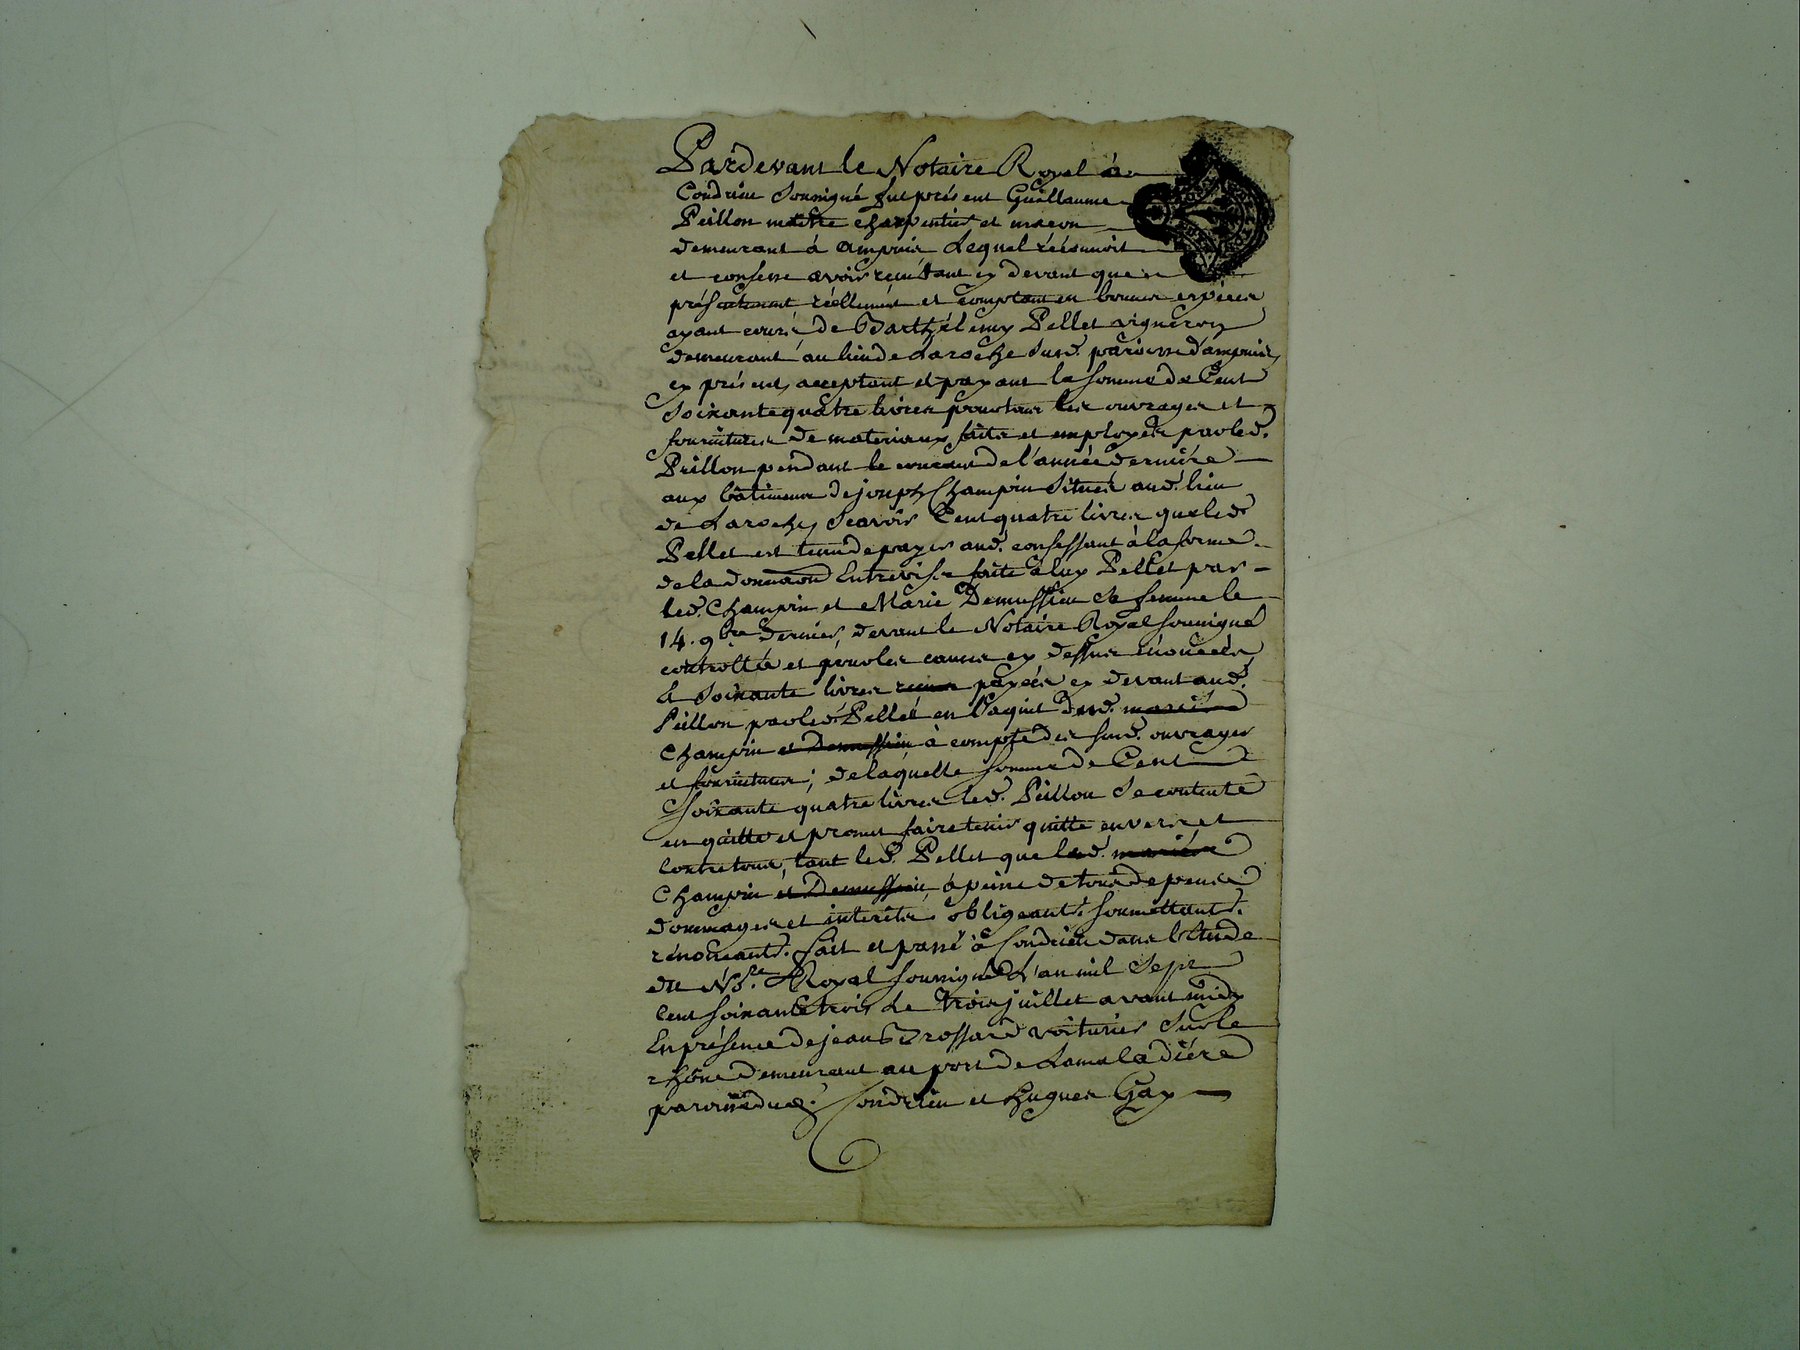 Pardevant le Notaire Royal à
Condrieu Soussigné fut présent Guillaume
Peillon maître charpentier et maçon
demeurant à Ampuis Lequel réconnoit
et confesse avoir reçu tant cy devant que
présentement réellement et comptant en bonnes espèces
ayant cours de Barthélemy Pellet vigneron
demeurant au lieu de Laroche Susd. paroisse d'ampuis
cy présent, acceptant et payant la somme de Cent
Soixante quatre livres pour tous les ouvrages et
fournitures de materiaux faits et employés par led.
Peillon pendant le courant de l'année derniére
aux bâtimens de joseph Champin Situés aud. lieu
de Laroche, Scavoir Cent quatre livres que led.
Pellet est tenu de payer aud. confessant à la forme
de la donnaon Entrevifs faite à luy Pellet par
led. Champin et Marie Demussieu Sa femme le
14. 9bre dernier, devant le Notaire Royal soussigné
controllée et pour les causes cy dessus énoncées,
& Soixante livres payées cy devant aud.
Peillon par led. Pellet en l'aquit dud. mariés
Champin et Demussieu à compte des susd. ouvrages
et fournitures; de laquelle somme de Cent
Soixante quatre livres led. Peillon Se contente
en quitte et promet faire tenir quitte envers et
contre tous, tant led. Pellet que led. mariés
Champin et Demussieu, à peine de tous depens
dommages et interêts, obligeant. soumettant.
rénonceant. fait et passé à Condrieu dans l'étude
du Nore. Royal soussigné L'an mil Sept
cent soixante trois Le trois juillet avant midy
En présence de jean Brossard voiturier Sur le
rhône demeurant au port de Lamaladiére
paroisse dud. Condrieu et hugues Gay